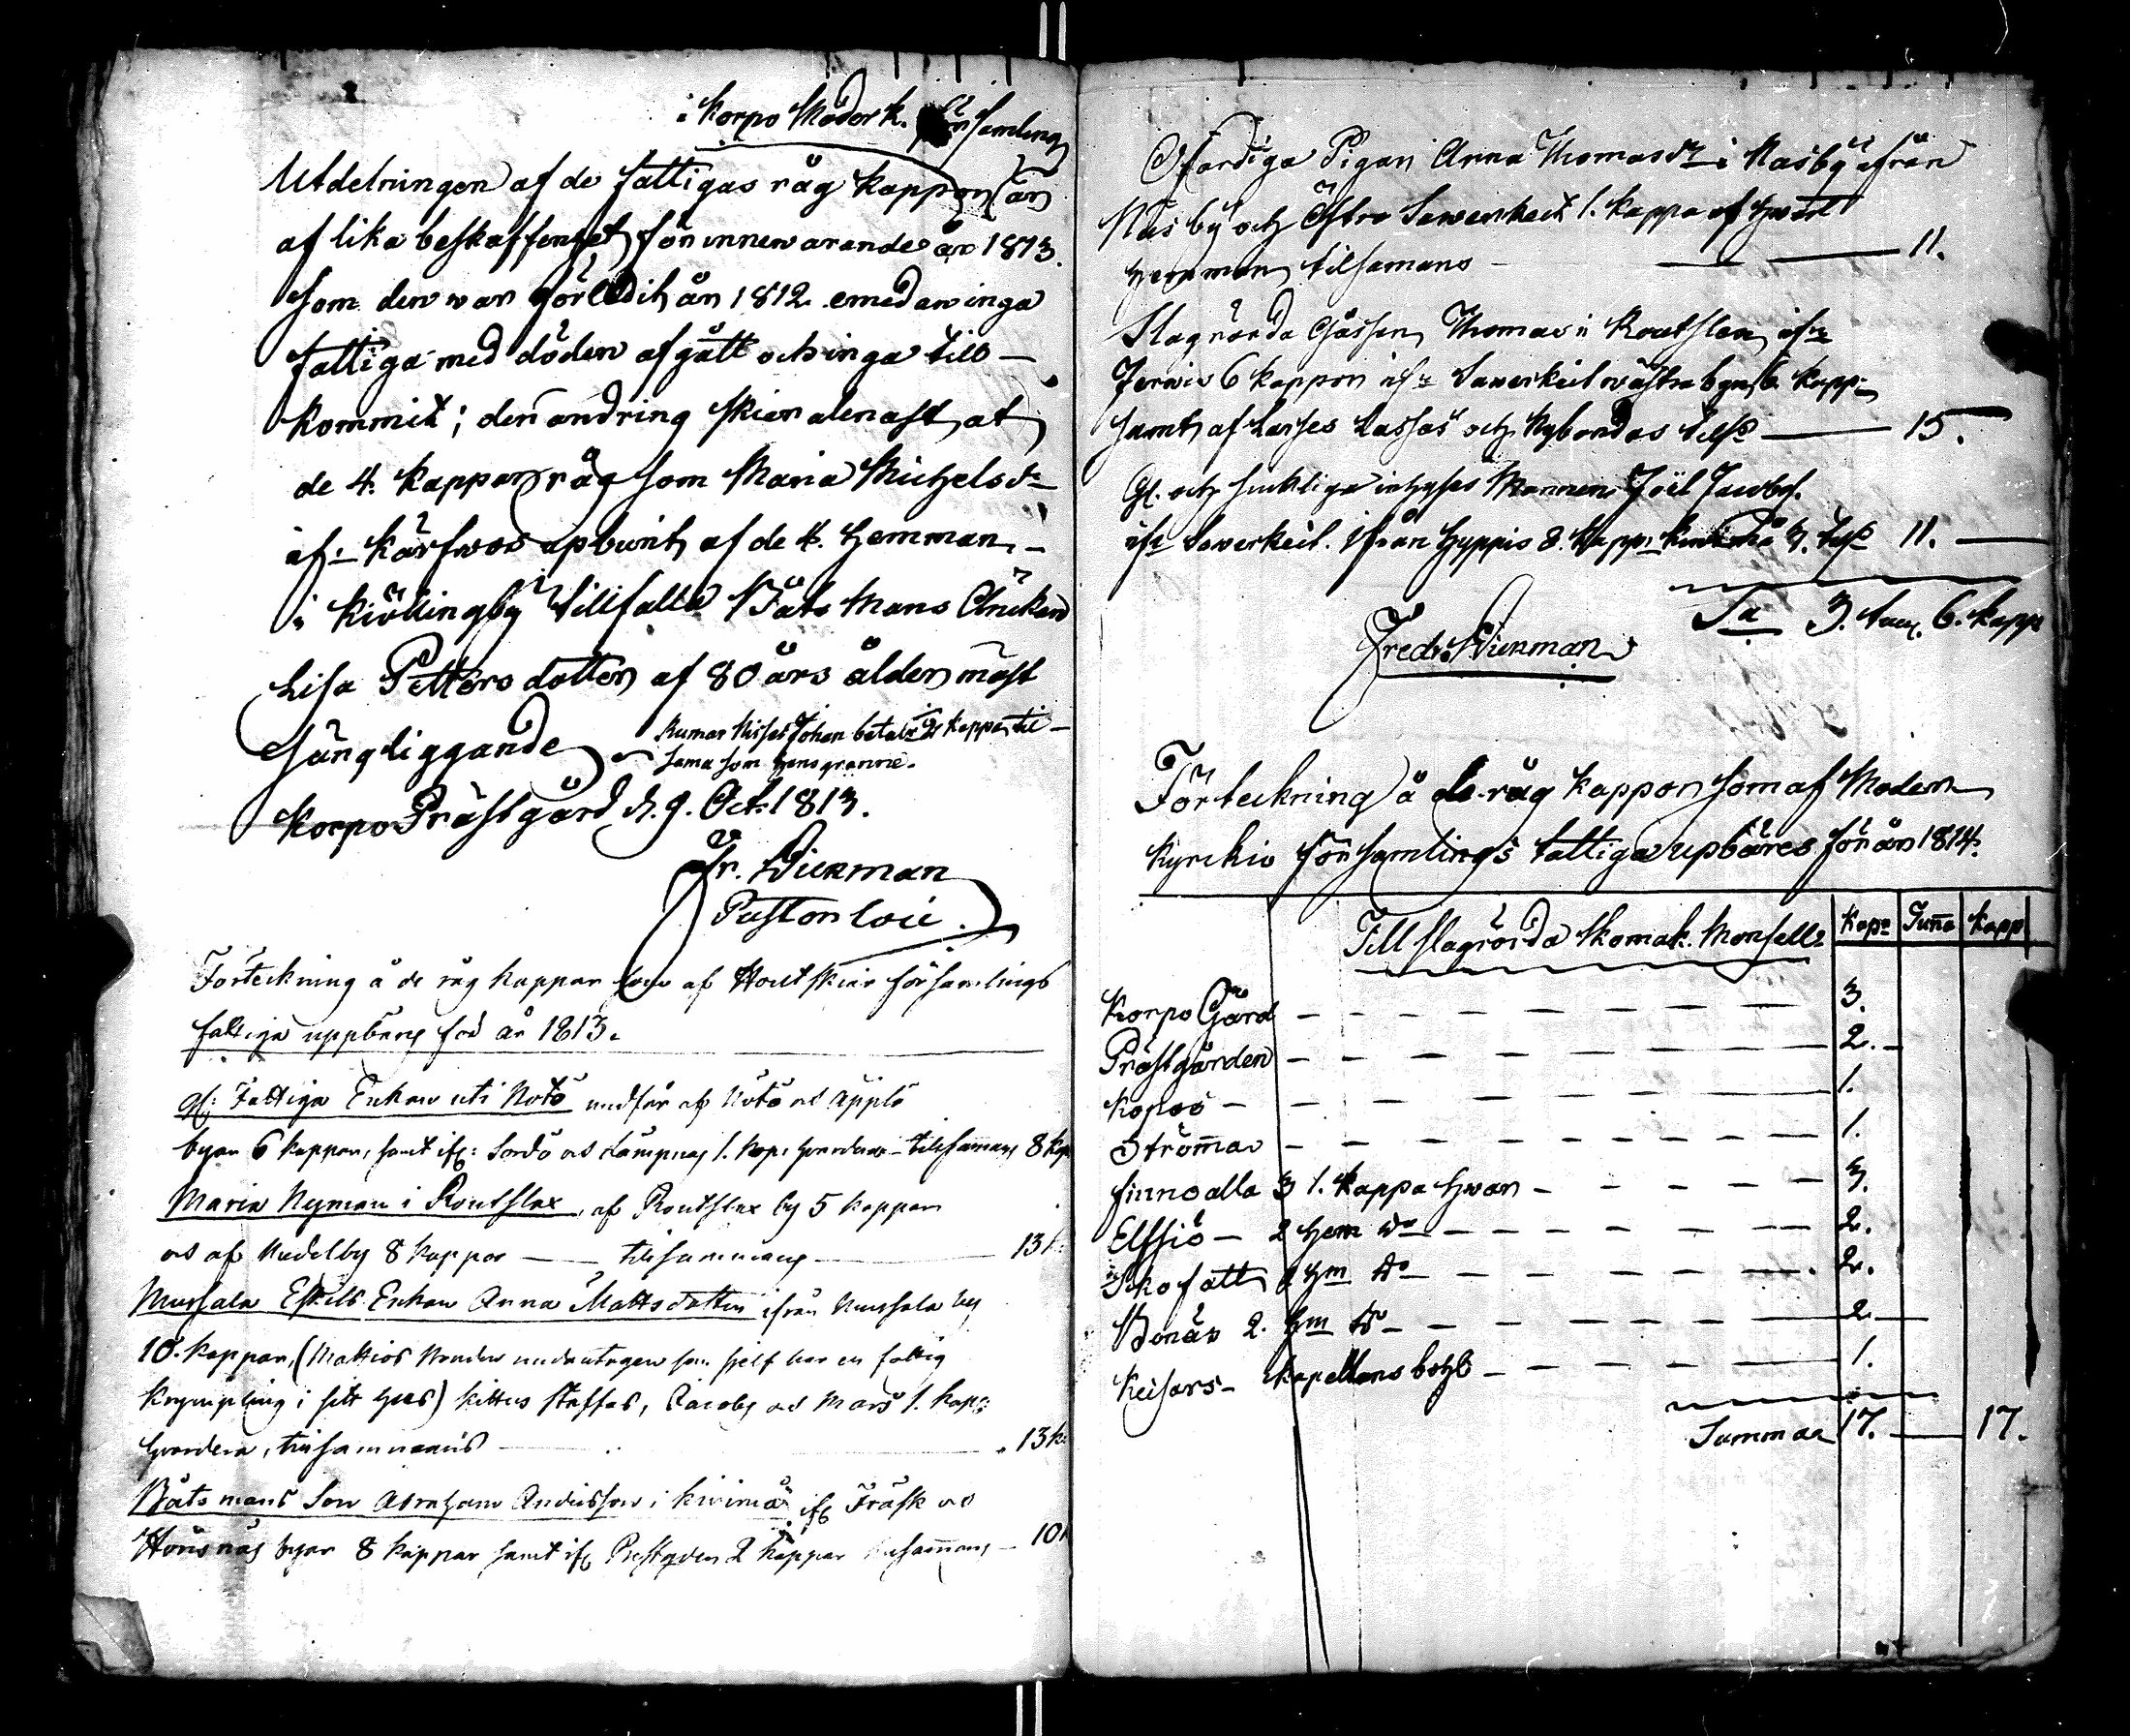 i Korpo Moderk. Församling
Utdelningen af de fattigas råg kappor är
af lika beskaffenhet för innewarande år 1813.
som den war förledit år 1812 emedan inga
fattiga med döden afgått och inga till-
kommit; den ändring skier alenast at
de 4. kappor råg som Maria Michelsdr
if: Kärfwos upburit af de 4. Hemman
i Kiöllingby tillfalla Båts Mans Änckan
Lisa Petters dotter af 80 års ålder mäst
Sängliggande
Rumar Nisses Johan betalr 2 kappor til
sama som hans granne.
Korpo Prästgård d. 9. Oct. 1813.
Fr. Wickman
Pastor loci
Förteckning å de råg kappar som af Houtskiär församlings
fattiga uppbäres för år 1813.
Gl: Fattiga Enkan uti Nötö undfår af Nötö och Äpplö
byar 6 kappar, samt if: Sordö och 1. kap: hwardera - tillsamans 8 kap
Maria Nyman i Routslax, af Routslax by 5 kappar
och af Kudelby 8 kappor — tillsammans — 13 k:
Mussala Eskils Enkan Anna Mattsdotter ifrån Mussala by
10. kappar, (Mattsos undantagen som sjelf har en fattig
Krympling i sitt hus) Kittus Staffas, Jacobs och Mars 1. kap:
hwardera, tillsammans — 13 k:
Båts mans Son Abraham Andersson i Kivimå if Träsk och
Hönsnäs byar 8 kappar samt if Prestgården 2 kappar tillsammans — 10 k
Ofärdiga Pigan Anna Thomasdr i Näsby ifrån
Näs by och Östra Sawerkeit 1. kappa af hwart
hemman tilsamans — 11.
Slagrörda Gåssen Thomas i Routslax ifr
Jerwis 6 kappor ifr Sawerkeit wästra byn 6. kappr
samt af Larses Lassas och Nybondas tilss — 15.
Gl. och siukliga inhyses Mannen Joël Jacobss.
ifr Sawerkeit. ifrån Hyppis 8. kappr Kivimå 3. tilss 11. —
Sa 3. tunn. 6. kapp
Fredr. Wickman
Förteckning å de råg kappor som af Moder
Kyrckio församlings fattiga upbäres för år 1814.
Till slagrörda Skomak. Monsell Kapr Suma Kapp
Korpo Gård — 3.
Prästgården — 2. —
Kopos — 1.
Ströma — 1.
Finno alla 3 1. kappa hwar — 3.
Elfsiö — 2 hem do — 2.
Rikofatt 2 hm do — 2.
Bonäs 2. hm do — 2
Keisars — Kapellans bohl — 1.
Summa 17. — 17.